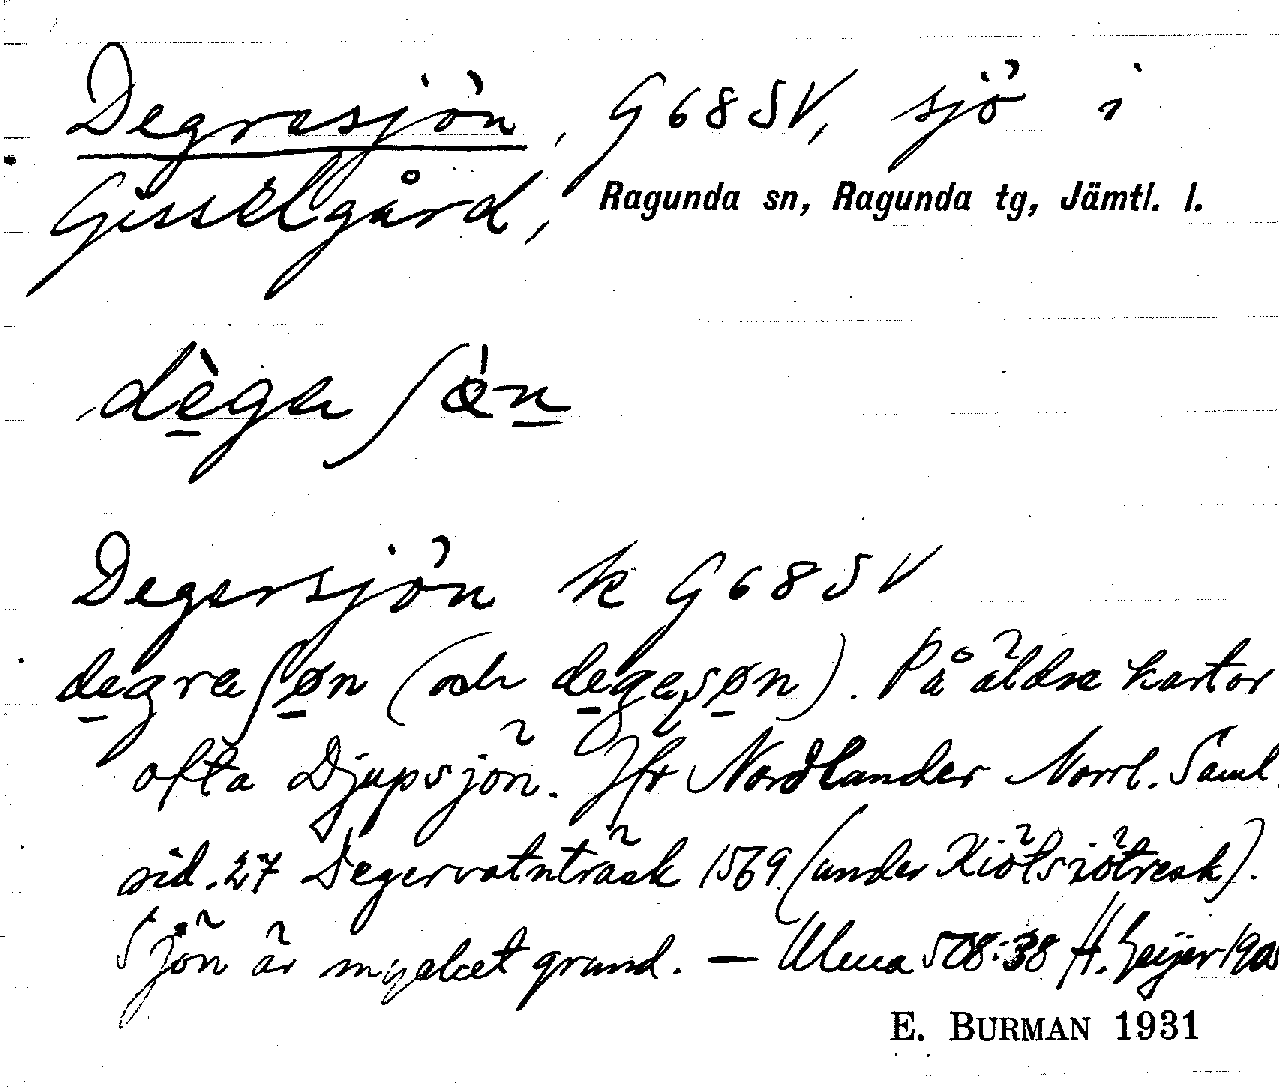 Degresjön, G68SV, sjö i
Gisselgård, Ragunda sn, Ragunda tg, Jämtl. l.
dèga ʃø̀n
Degersjön k G68SV
degra ʃøn (och degaʃøn). På äldre kartor
ofta Djupsjön. Jfr Nordlander Norrl. Saml.
sid. 27 Degervatnträsk 1569 (under Kiötsiötresk).
Sjön är mycket grund. — Ulma 508:38 H. Geijer 1908
E. BURMAN 1931